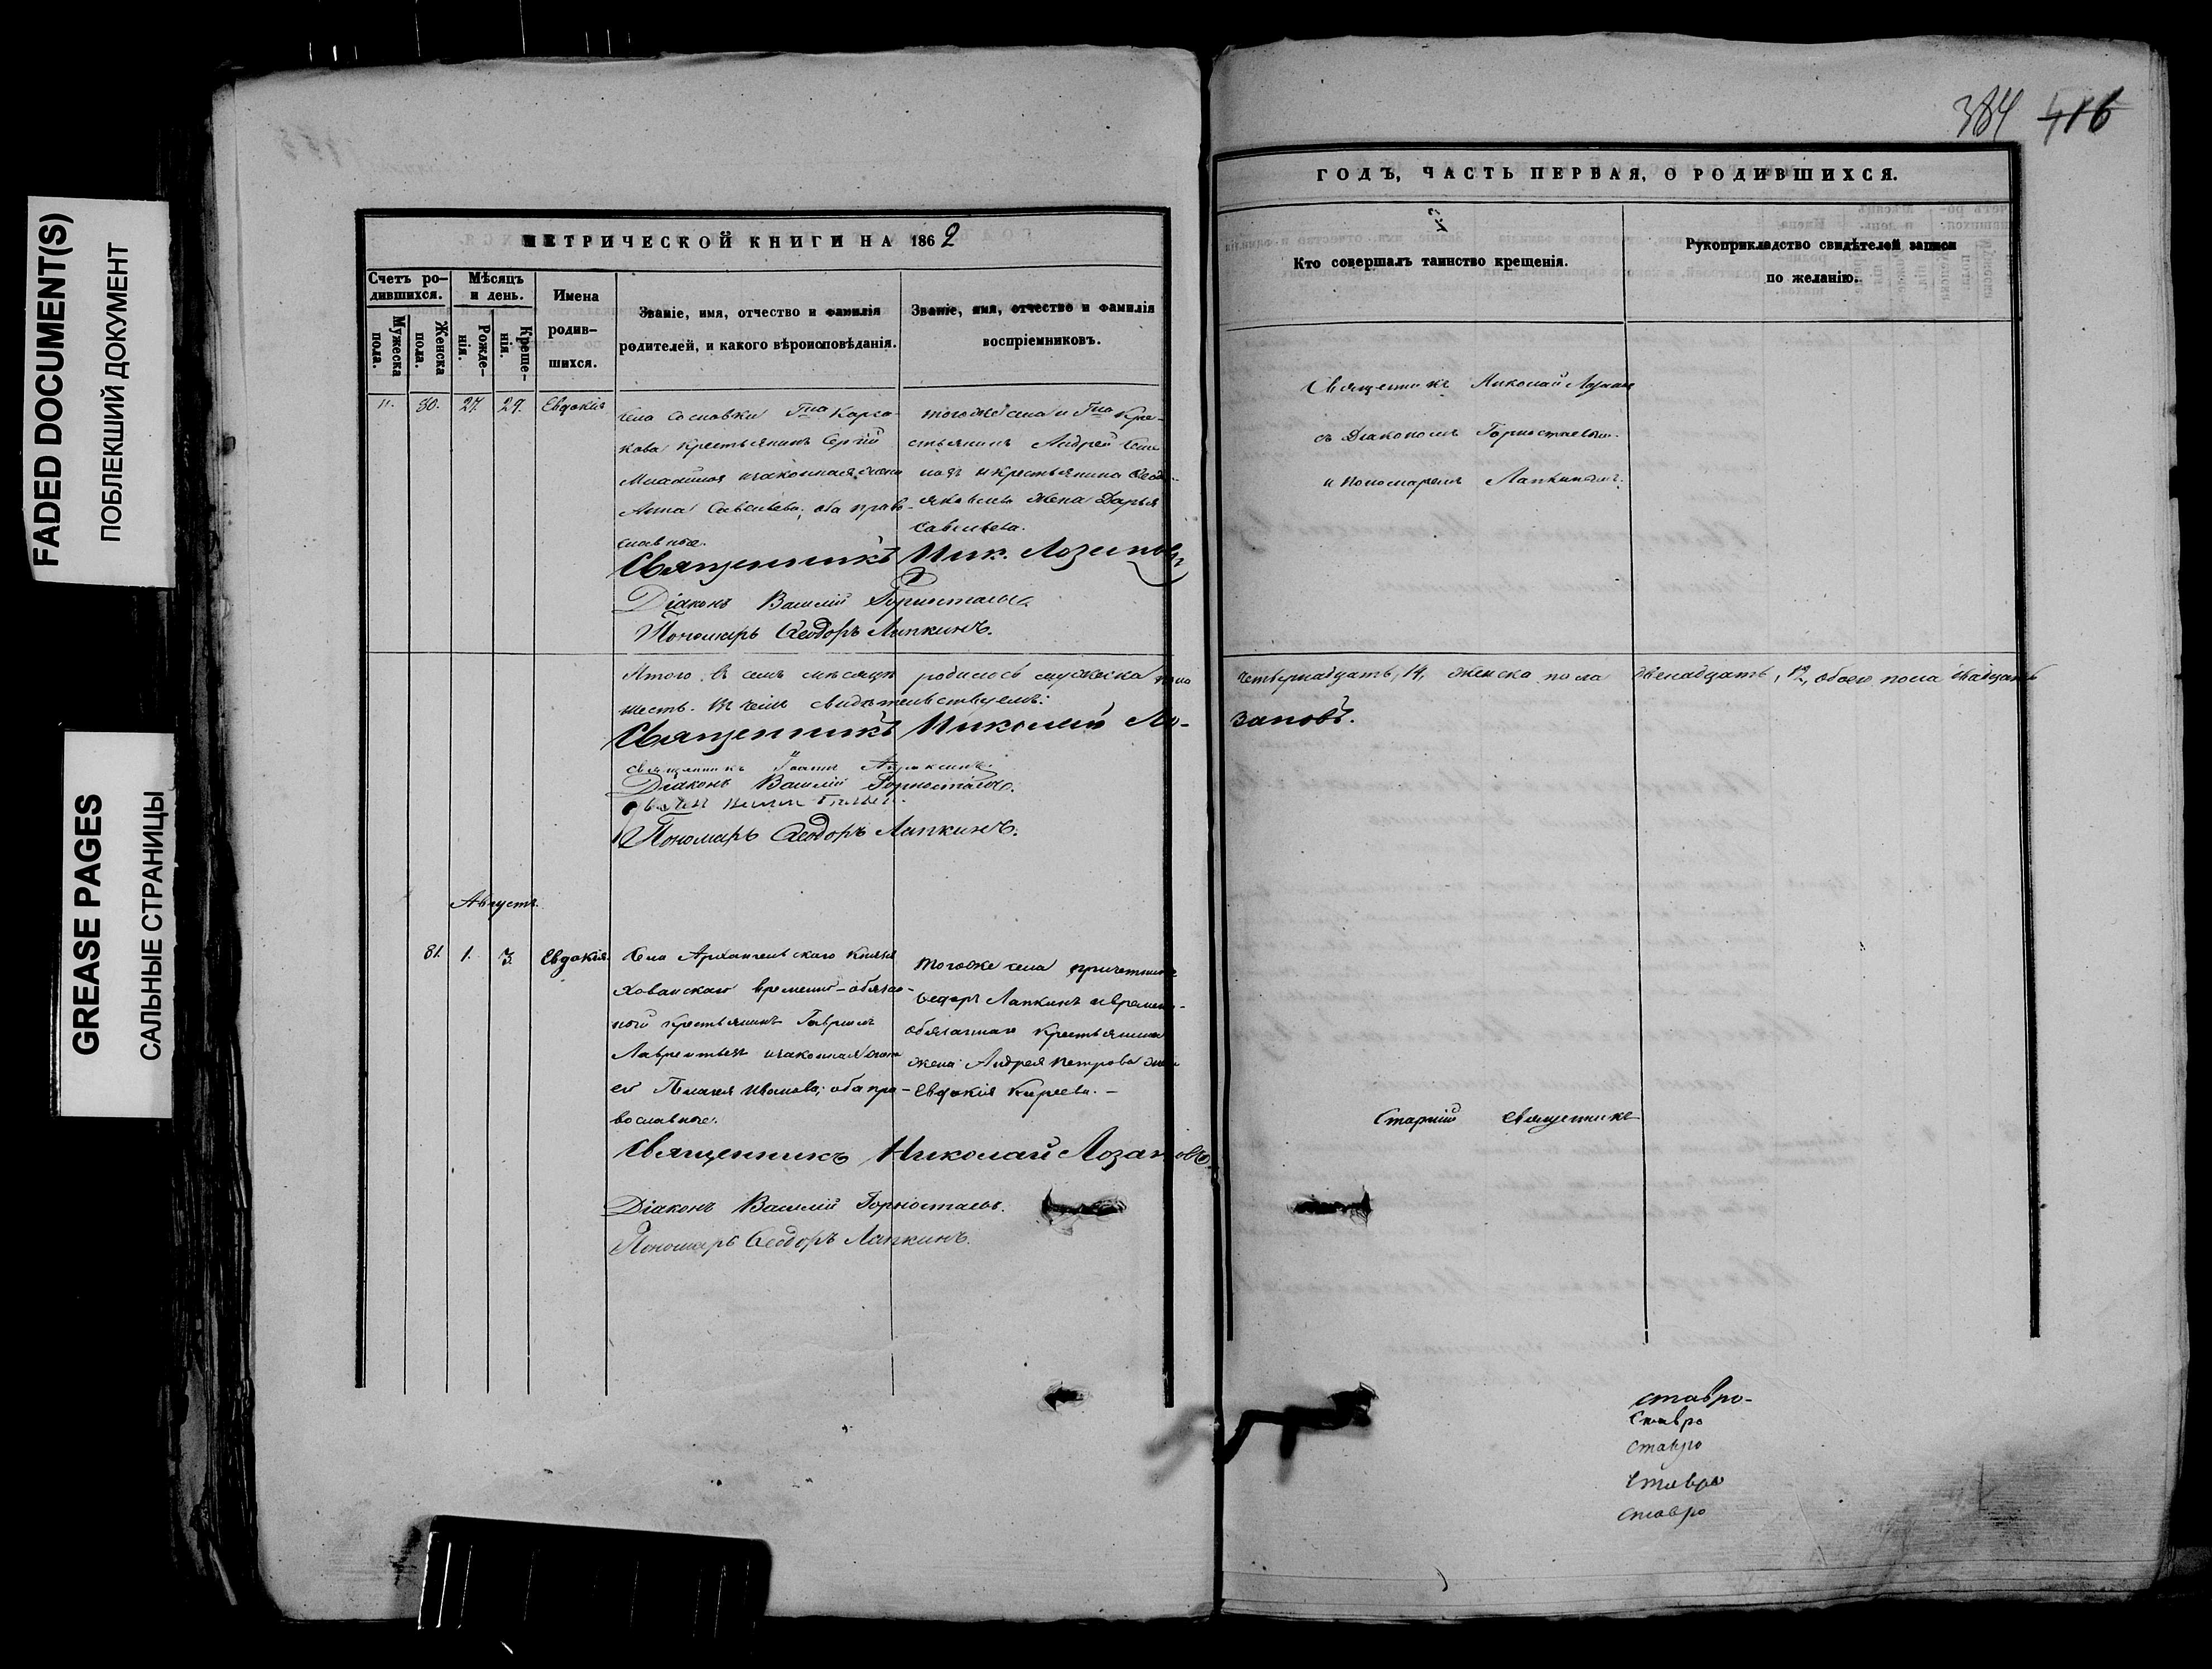 FADED DOCUMENT(S)
ПОБЛЕКШИЙ ДОКУМЕНТ
GREASE PAGES
САЛЬНЫЕ СТРАНИЦЫ
МЕТРИЧЕСКОЙ КНИГИ НА 1862
Счетъ ро-
дившихся.
Мужеска
пола.
Женска
пола.
Мѣсяцъ
и день.
Рожде-
нія.
Креще-
нія.
Имена
родив-
шихся.
Званіе, имя, отчество и фамилія
родителей, и какого вѣроисповѣданія.
Званіе, имя, отчество и фамилія
воспріемниковъ.
80. 27. 29. Евдокія
села Сосновки Гна Карга-
кова крестьянинъ Сергій
и законная жена
Анна Савельева, оба право-
славные.
тогоже села и Гна Кре-
стьянинъ Андрей
и крестьянина
Яковлева жена Дарья
Савельева.
Священникъ Ник. Лозановъ
Діаконъ Василій Горностаевъ
Пономарь Ѳеодоръ Лапкинъ.
Итого въ семъ мѣсяцѣ родилось мужеска пола
шесть. Въ чемъ свидѣтельствуемъ:
Священникъ Николай Ло-
священникъ Іоаннъ
Діаконъ Василій Горностаевъ.
Пономарь Ѳеодоръ Лапкинъ.
Августъ.
81. 1. 3. Евдокія.
Села Архангельскаго Князя
Хованскаго временно-обязан-
ной крестьянинъ Гавріилъ
Лаврентьевъ и законная жена
его Пелагея Иванова; оба пра-
вославные.
тогоже села причетникъ
Ѳедоръ Лапкинъ и временно-
обязаннаго крестьянина
жена Андрея Петрова жена
Евдокія Киреева.-
Священникъ Николай Лозановъ.
Діаконъ Василій Горностаевъ.
Пономарь Ѳеодоръ Лапкинъ.
384 416
ГОДЪ, ЧАСТЬ ПЕРВАЯ, О РОДИВШИХСЯ.
Кто совершалъ таинство крещенія.
Рукоприкладство свидѣтелей записи
по желанію.
Священникъ Николай Лозановъ
съ Діакономъ Горностаевымъ
и Пономаремъ Лапкинымъ.
четырнадцать, 14, женска пола двенадцать, 12, обоего пола двадцать
зановъ.
Старшій Священникъ
ставро-
Ставро
Ставро
Ставро
ставро